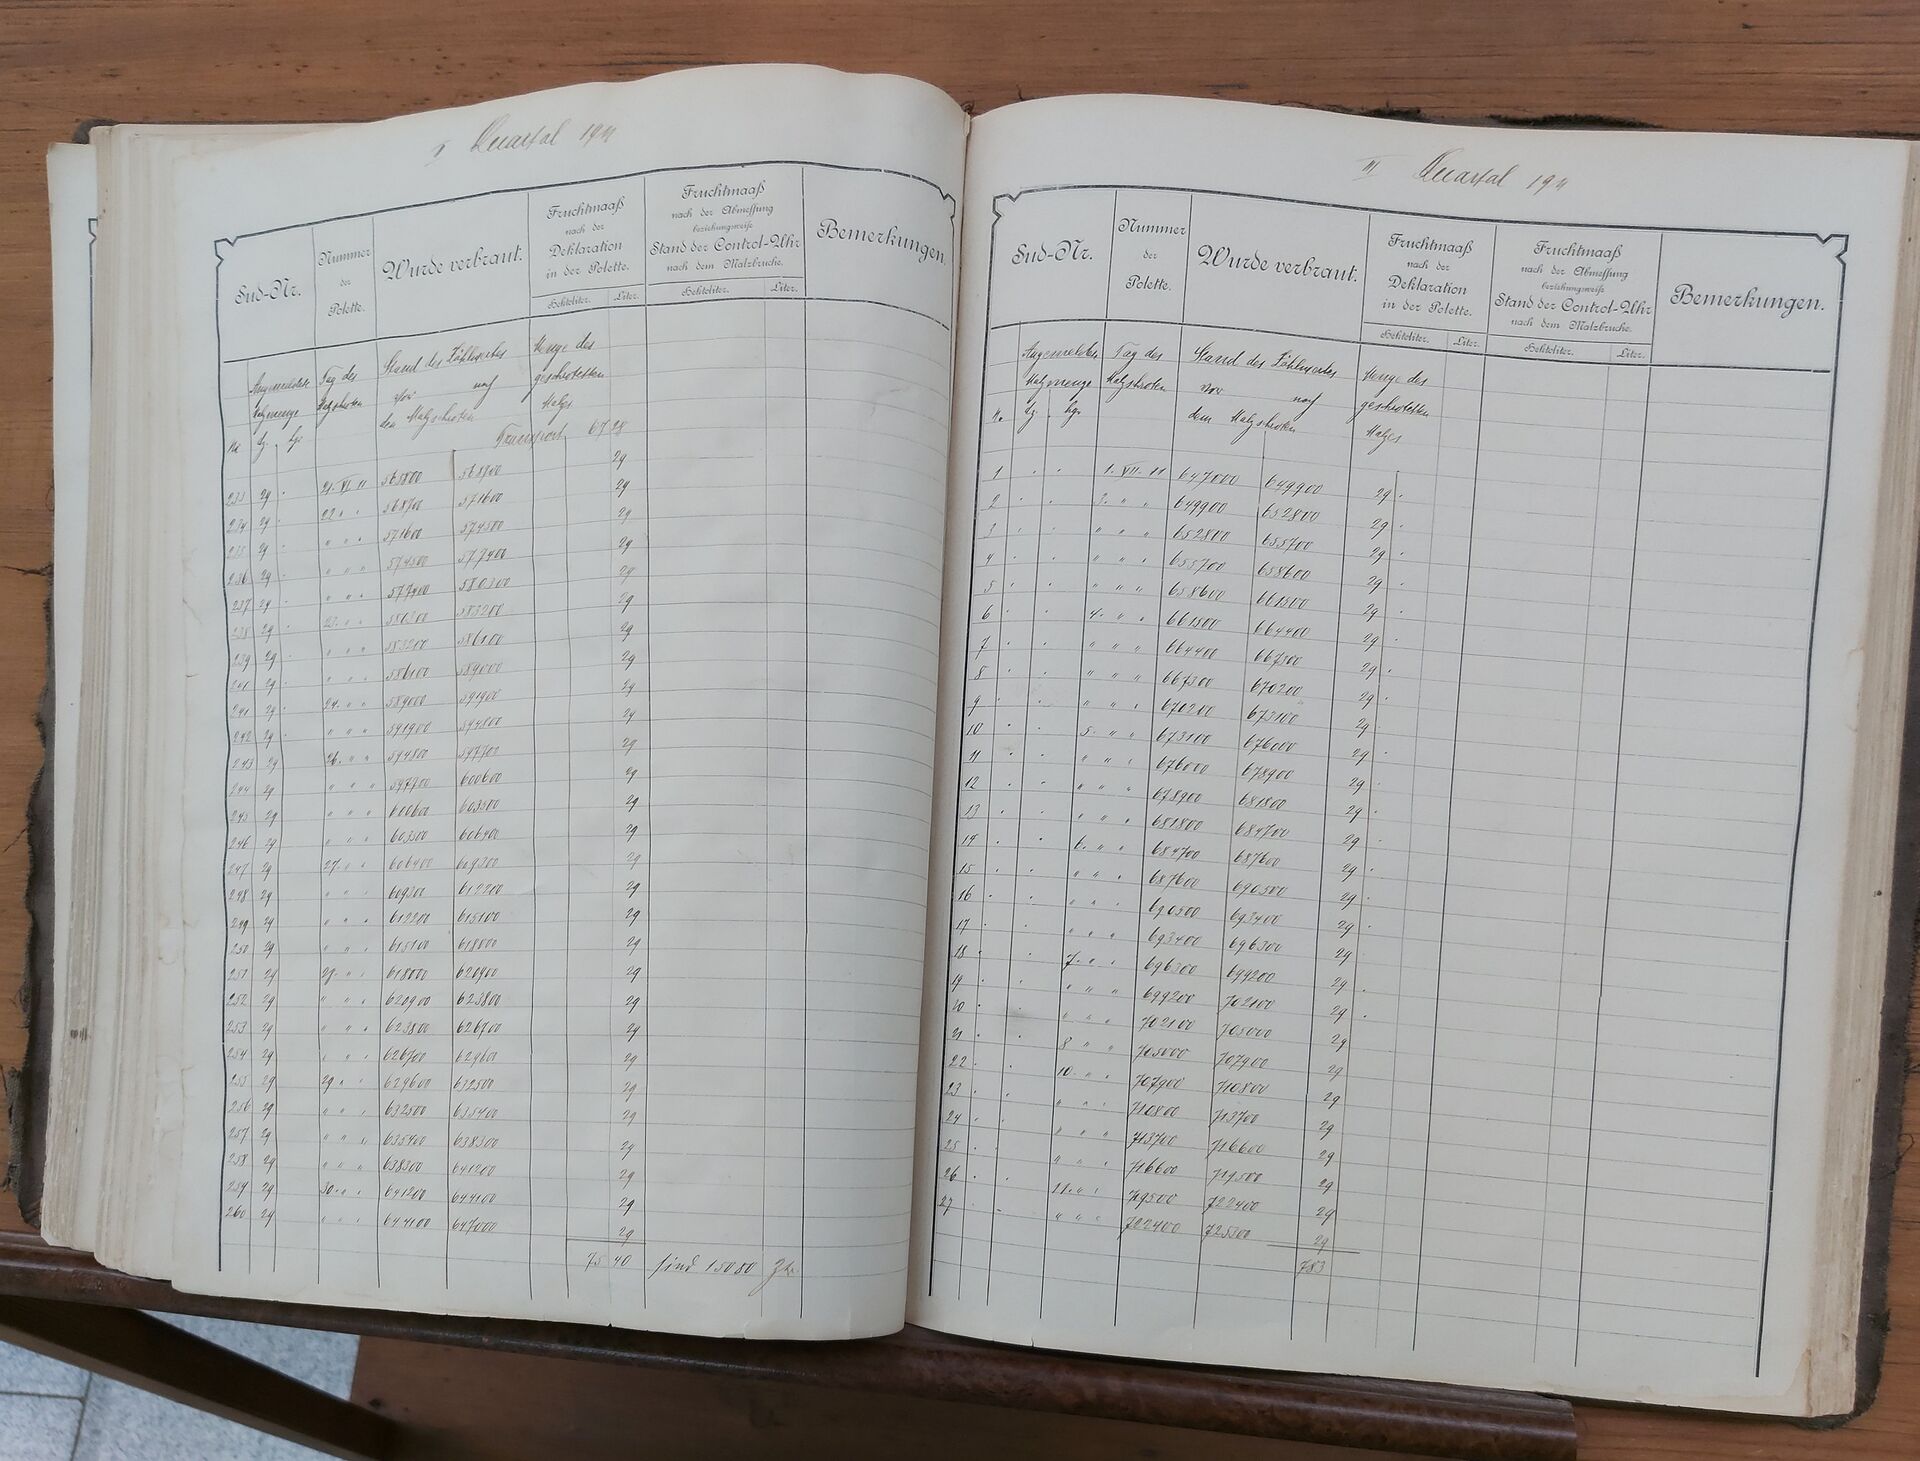 II Quartal 1911
Sud-Nr.
Nummer der Polette.
Wurde verbraut.
Fruchtmaaß nach der Deklaration in der Polette.
Hektoliter. Liter.
Fruchtmaaß nach der Abmessung beziehungsweise Stand der Control-Uhr nach dem Malzbruche.
Hektoliter. Liter.
Bemerkungen.
Angemeldete Tag des Stand des Zählwerkes Menge des
Malzmenge Malzschroten vor nach geschroteten
No dz. kg. dem Malzschroten Malzes
Transport 67 28
233 29 . 21. VI 11 565800 568700 29
234 29 . 22. " " 568700 571600 29
235 29 . " " " 571600 574500 29
236 29 . " " " 574500 577400 29
237 29 . " " " 577400 580300 29
238 29 . 23. " " 580300 583200 29
239 29 . " " " 583200 586100 29
240 29 . " " " 586100 589000 29
241 29 . 24. " " 589000 591900 29
242 29 . " " " 591900 594800 29
243 29 26. " " 594800 597700 29
244 29 " " " 597700 600600 29
245 29 " " " 600600 603500 29
246 29 " " " 603500 606400 29
247 29 27. " " 606400 609300 29
248 29 " " " 609300 612200 29
249 29 " " " 612200 615100 29
250 29 " " " 615100 618000 29
251 29 28. " " 618000 620900 29
252 29 " " " 620900 623800 29
253 29 " " " 623800 626700 29
254 29 " " " 626700 629600 29
255 29 29. " " 629600 632500 29
256 29 " " " 632500 635400 29
257 29 " " " 635400 638300 29
258 29 " " " 638300 641200 29
259 29 30. " " 641200 644100 29
260 29 " " " 644100 647000 29
75 40 sind 15080
III Quartal 1911
Sud-Nr.
Nummer der Polette.
Wurde verbraut.
Fruchtmaaß nach der Deklaration in der Polette.
Hektoliter. Liter.
Fruchtmaaß nach der Abmessung beziehungsweise Stand der Control-Uhr nach dem Malzbruche.
Hektoliter. Liter.
Bemerkungen.
Angemeldete Tag des Stand des Zählwerkes Menge des
Malzmenge Malzschroten vor nach geschroteten
No. dz. kg. dem Malzschroten Malzes
1 . . 1. VII. 11 647000 649900 29 .
2 . . 3. " " 649900 652800 29 .
3 . . " " " 652800 655700 29 .
4 . . " " " 655700 658600 29 .
5 . . " " " 658600 661500 29 .
6 . . 4. " " 661500 664400 29 .
7 . . " " " 664400 667300 29 .
8 . . " " " 667300 670200 29 .
9 . . " " " 670200 673100 29 .
10 . . 5. " " 673100 676000 29 .
11 . . " " " 676000 678900 29 .
12 . . " " " 678900 681800 29 .
13 . . " " " 681800 684700 29 .
14 . . 6. " " 684700 687600 29 .
15 . . " " " 687600 690500 29 .
16 . . " " " 690500 693400 29 .
17 . . " " " 693400 696300 29
18 . . 7. " " 696300 699200 29 .
19 . . " " " 699200 702100 29 .
20 . . " " " 702100 705000 29
21 . . 8 " " 705000 707900 29
22 . . 10. " " 707900 710800 29
23 . . " " " 710800 713700 29
24 . . " " " 713700 716600 29
25 . . " " " 716600 719500 29
26 . . 11. " " 719500 722400 29
27 . . " " " 722400 725300 29
783